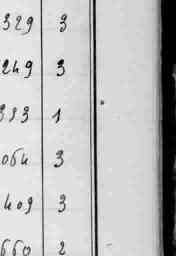 329 3
249 3
393 1
064 3
409 3
660 2